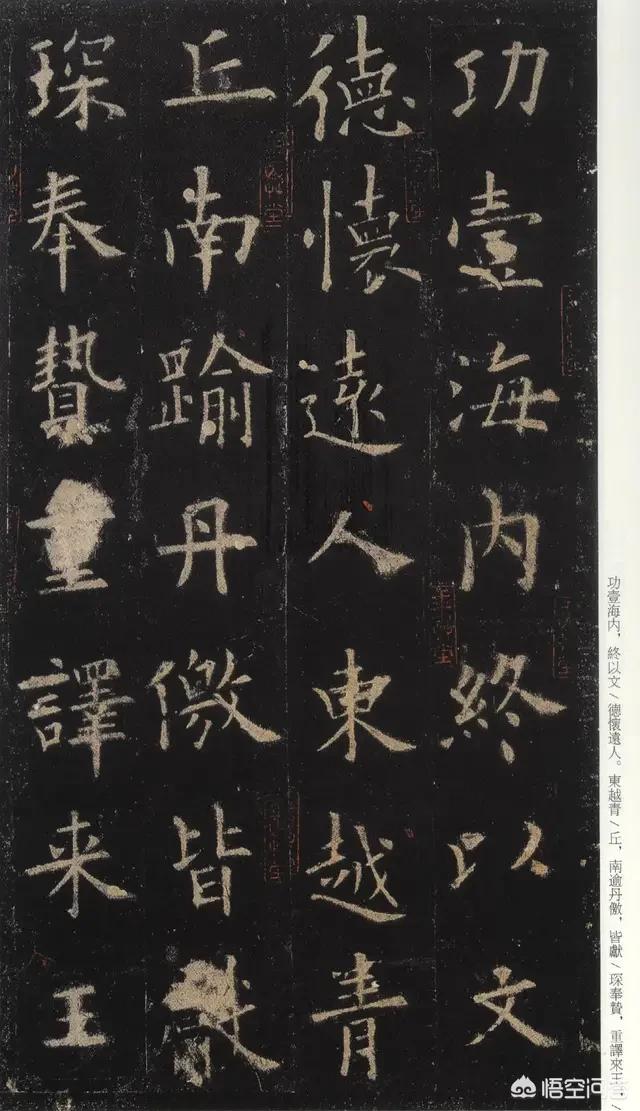 功壹海内終以文
德懷遠人東越青
丘南踰丹徼皆獻
琛奉贄重譯来王
功壹海内，終以文／德懷遠人。東越青／丘，南逾丹徼，皆獻／琛奉贄，重譯來王。／
悟空问答